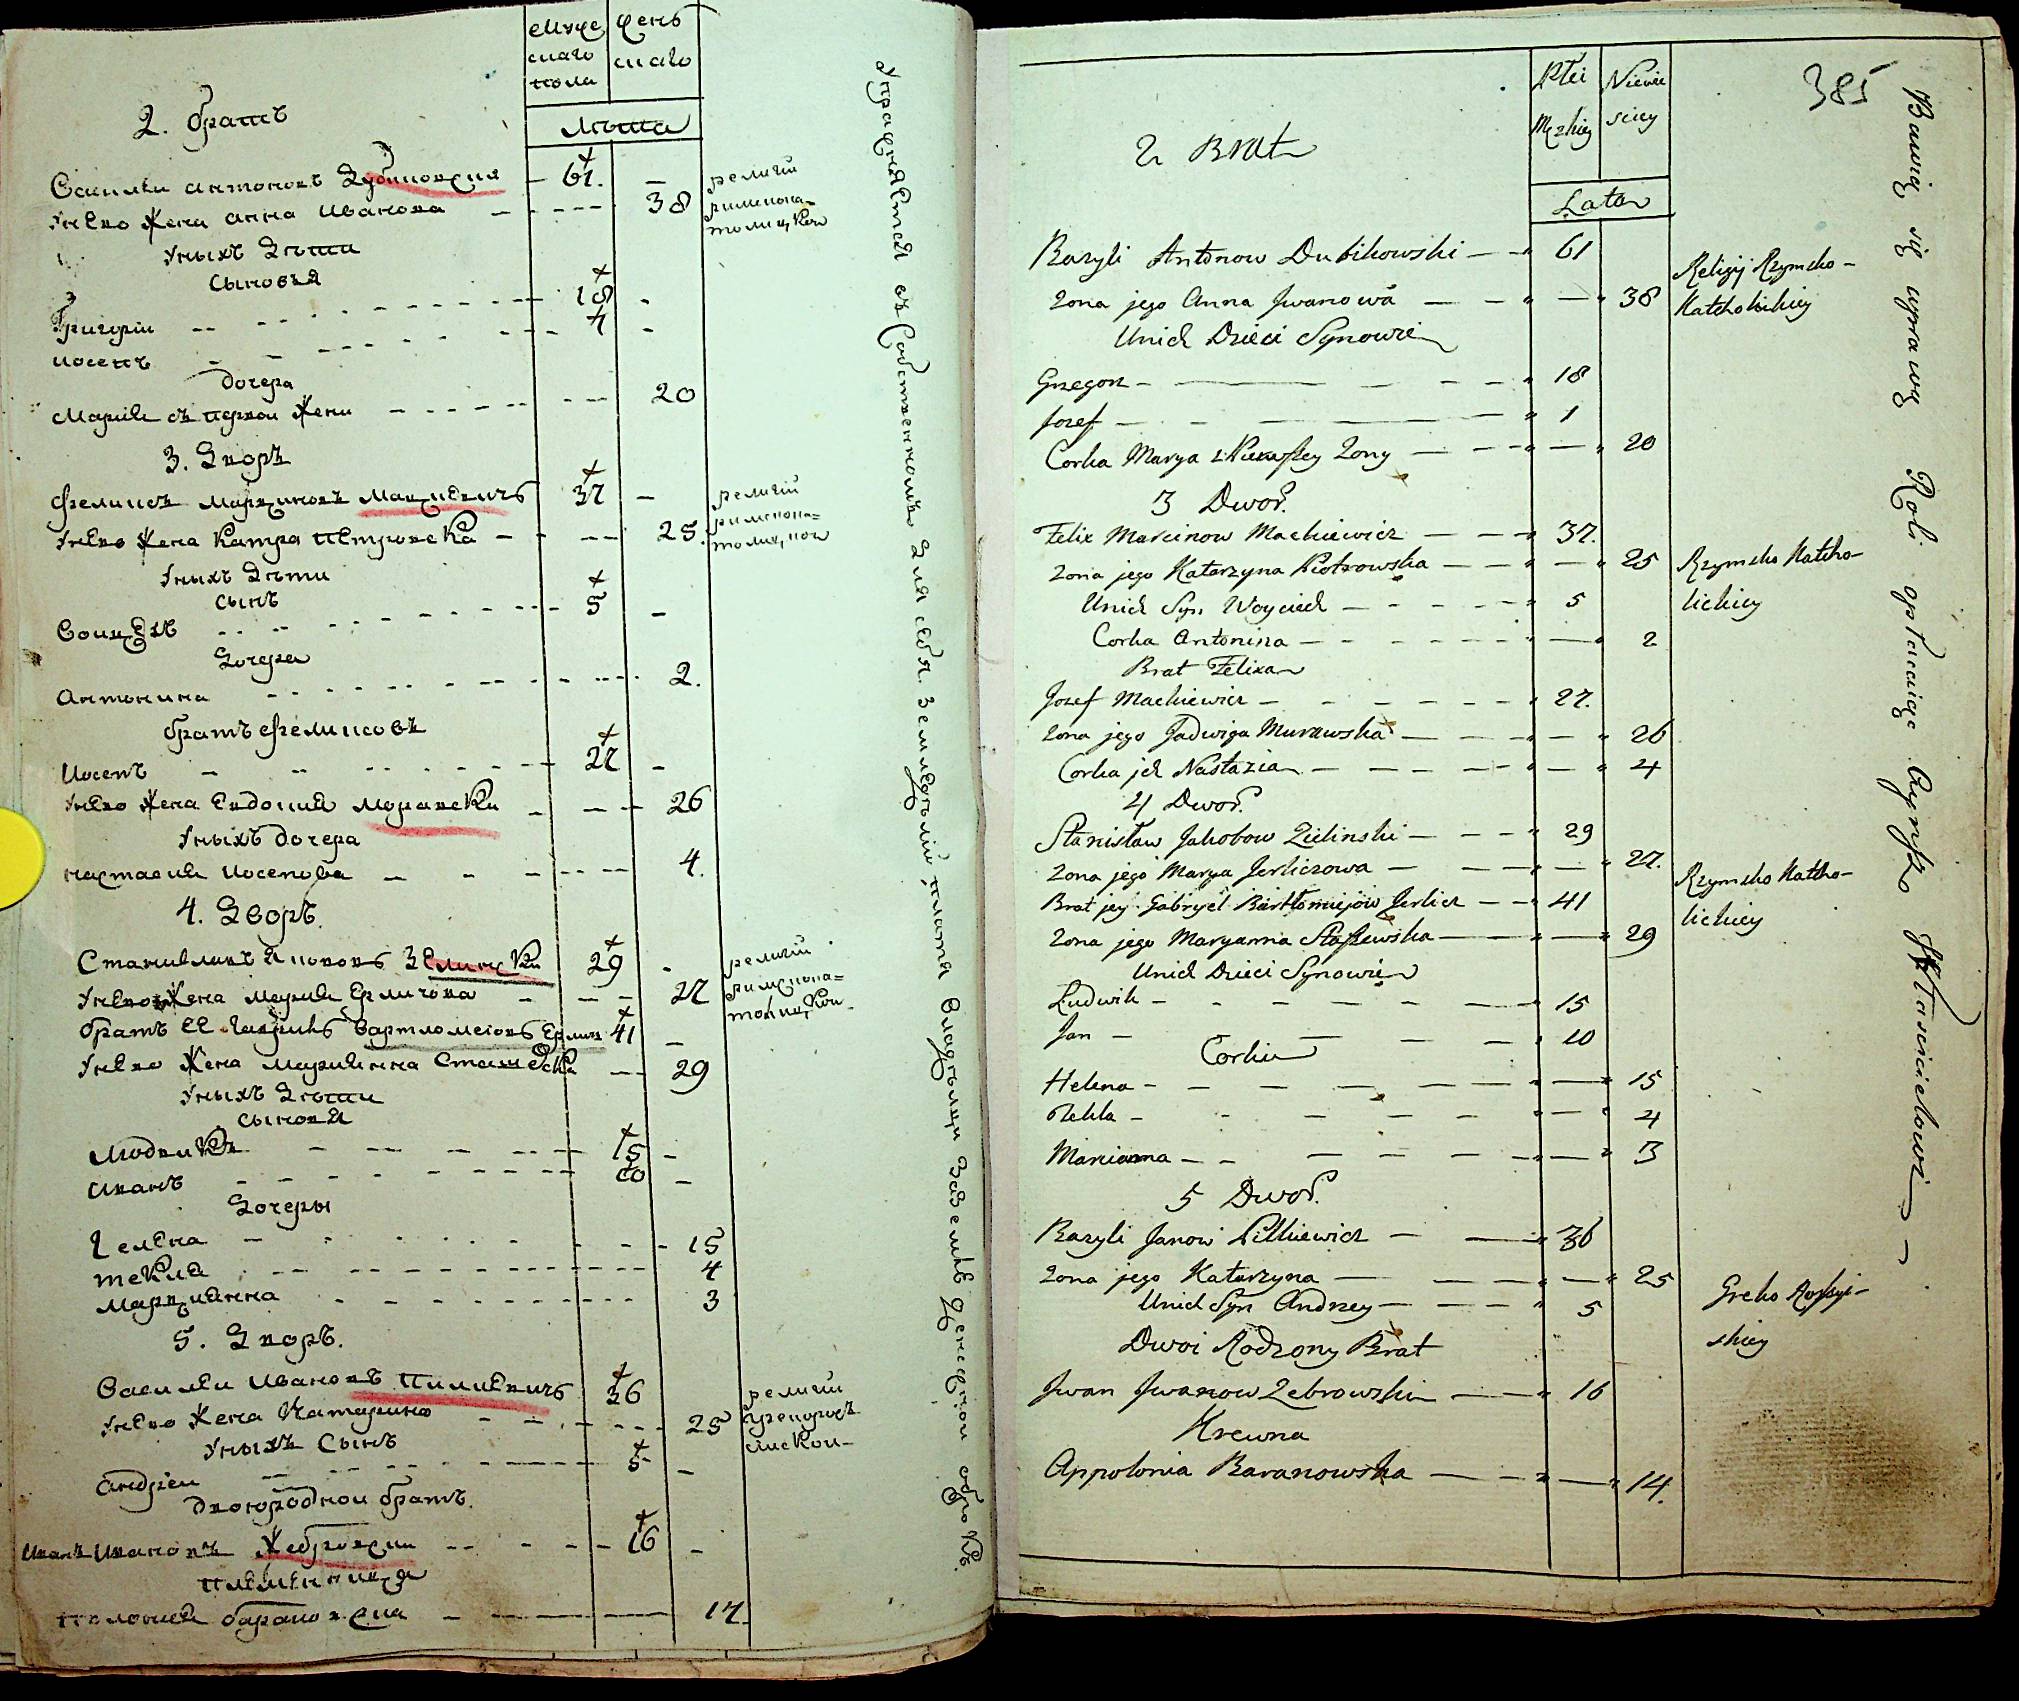 муже
скаго
пола
жень
скаго
Лѣта
2. братъ
Василѣи антоновъ Дубиковскіи - 61. -
Унѣво жена анна Иванова - 38
религіи
римскока=
толицкои
Уныхъ Дѣти
Сыновья
Григоріи - 18 -
иосепъ -
дочера
Марія съ первои жени - 20
3. Дворъ
Феликсъ марциновъ Мацкевичъ 37 -
религіи
римскока=
толицкои
Унѣво жена Катра Петровска - 25.
Уныхъ Дѣти
сынъ
Воицѣхъ - 5 -
Дочера
Антонина - 2.
братъ феликсовъ
Иосепъ - 27 -
Унѣво жена Евдокия Моравски - 26
Уныхъ дочера
настасия Иосепова - 4.
4. Дворъ.
Станиславъ Якововъ Зелински 29 -
религіи
римскока=
толицкои
Унѣво жена Марія Ерличова - 27
братъ ее гаврилъ Вартломеіовъ Ерличъ 41 -
Унѣво Жена Маріянна Сташевска - 29
Уныхъ Дѣти
Сыновья
Людвикъ - 15 -
Иванъ - 10 -
Дочеры
Гелена - 15
текля - 4
Марціянна - 3
5. Дворъ.
Василѣи Ивановъ Пилкевичъ 36
религіи
грекорос
сискои
Унѣво жена Катарина - 25
Уныхъ Сынъ
андреи - 5 -
двоюродной братъ.
Иванъ Ивановъ Жебровски - 16 -
племенница
Полонея барановска - 14.
Упражняется въ Собственномъ Для себя земледѣліи, платя владѣльцу заземлю денежной оброкъ.
385
Płci
Męzkiey
Niewie
sciey
Lata
2 Brat
Bazyli Antonow Dubikowski - 61
Religij Rzymsko -
Katholickiey
Zona jego Anna Jwanowa - 38
Unich Dzieci Synowie
Grzegorz - 18
Jozef - 1
Corka Marya z Pierwszey Zony - 20
3 Dwor.
Felix Marcinow Mackiewicz - 37.
Zona jego Katarzyna Piotrowska - 25
Rzymsko Katho-
lickiey
Unich Syn Woyciech - 5
Corka Antonina - 2
Brat Felixa
Jozef Mackiewicz - 27.
Zona jego Jadwiga Murawska - 26
Corka jch Nastazia - 4
4 Dwor.
Stanisław Jakobow Zielinski - 29
Zona jego Marya Jerliczowa - 27.
Rzymsko Katho-
lickiey
Brat jey Gabryel Bartłomiejow Jerlicz - 41
Zona jego Maryanna Staszewska - 29
Unich Dzieci Synowie
Ludwik - 15
Jan - 10
Corki
Helena - 15
Tekla - 4
Marianna - 3
5 Dwor.
Bazyli Janow Pilkiewicz - 36
Zona jego Katarzyna - 25
Greko Rossyi-
skiey
Unich Syn Andrzey - 5
Dwoi Rodzony Brat
Jwan Jwanow Zebrowski - 16
Krewna
Appolonia Baranowska - 14.
Bawią się uprawą Roli opłacaiąc Czynsz Właścicielowi